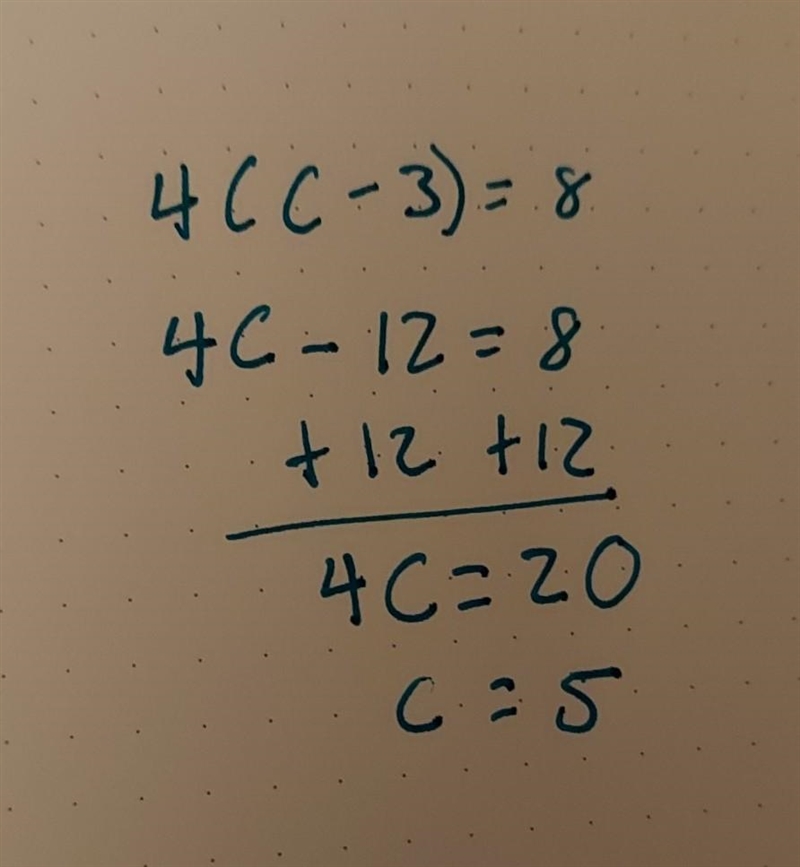 4(C-3)=8
4C-12=8
+12 +12
4C=20
C=5